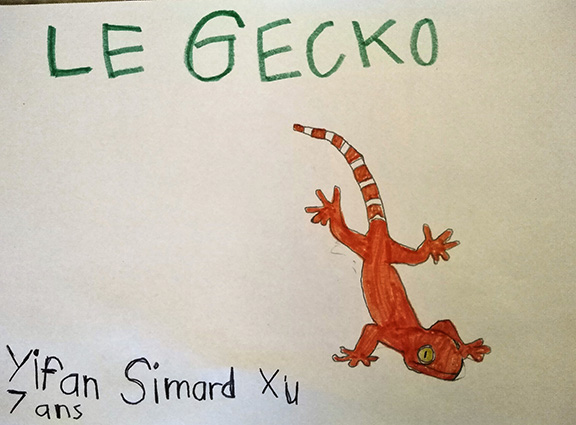 LE GECKO
Yifan Simard Xu
7 ans